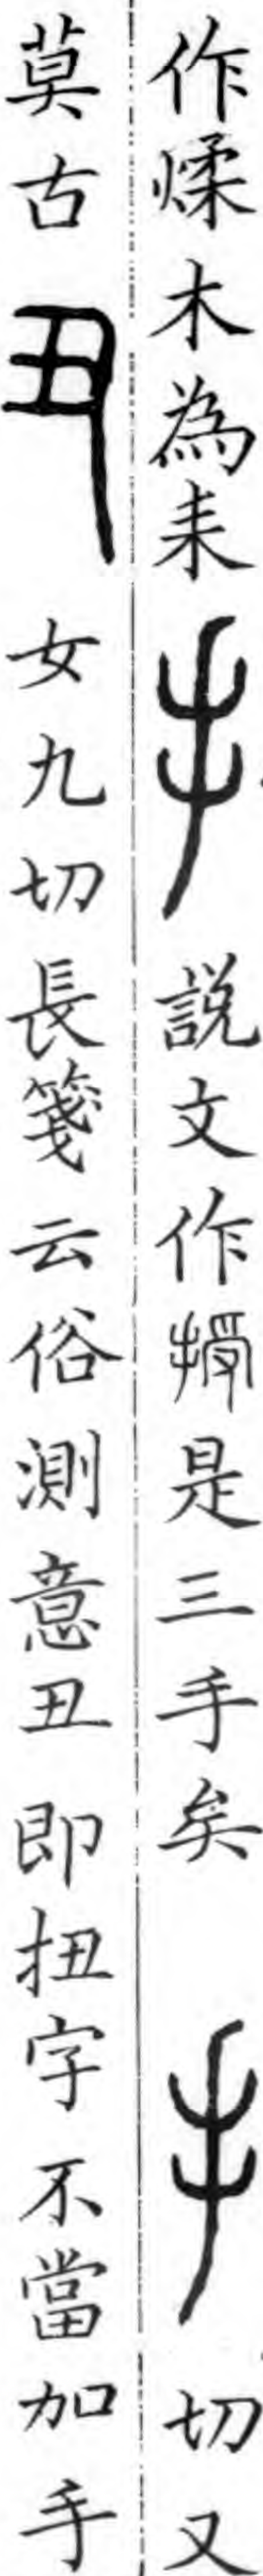 作煣木為耒 手 説文作授是三手矣 手 切又
莫古 丑 女九切長箋云俗測意丑即扭字不當加手